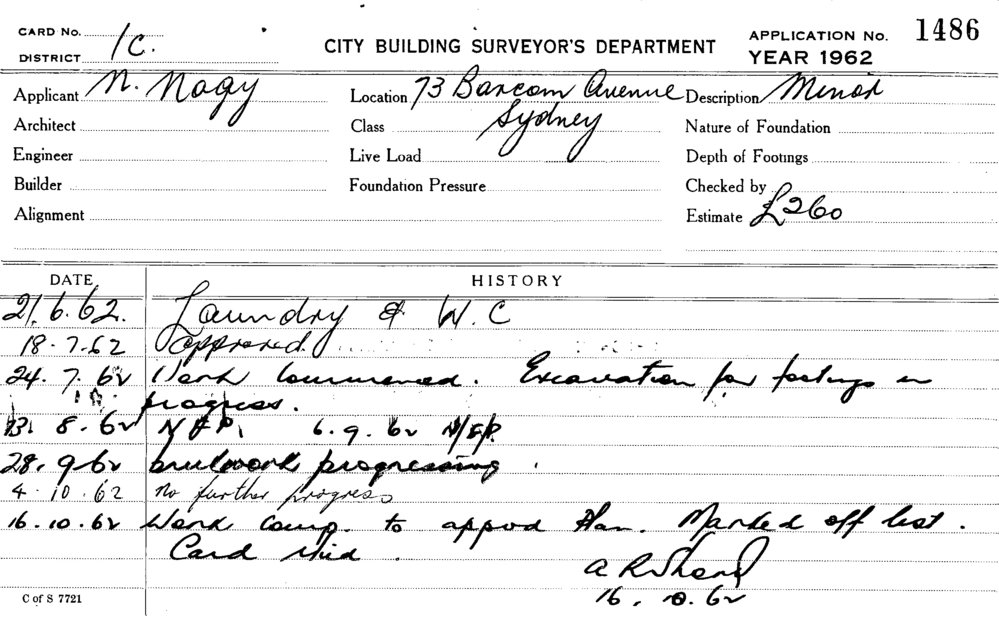 CARD No.
1C.
DISTRICT
CITY BUILDING SURVEYOR'S DEPARTMENT
APPLICATION No. 1486
YEAR 1962
Applicant N. Nagy
Location 73 Barcom Avenue
Sydney
Description Minor
Architect
Class
Nature of Foundation
Engineer
Live Load
Depth of Footings
Builder
Foundation Pressure
Checked by
Alignment
Estimate £260
DATE HISTORY
21.6.62. Laundry & W.C
18.7.62 approved
24.7.62 Work commenced. Excavation for footings in
progress.
8.62 N.F.P. 6.9.62 N/F/P.
28.9.62 brickwork progressing.
4.10.62 no further progress
16.10.62 Work comp. to appvd Plan. Marked off list.
Card
16.10.62
C of S 7721